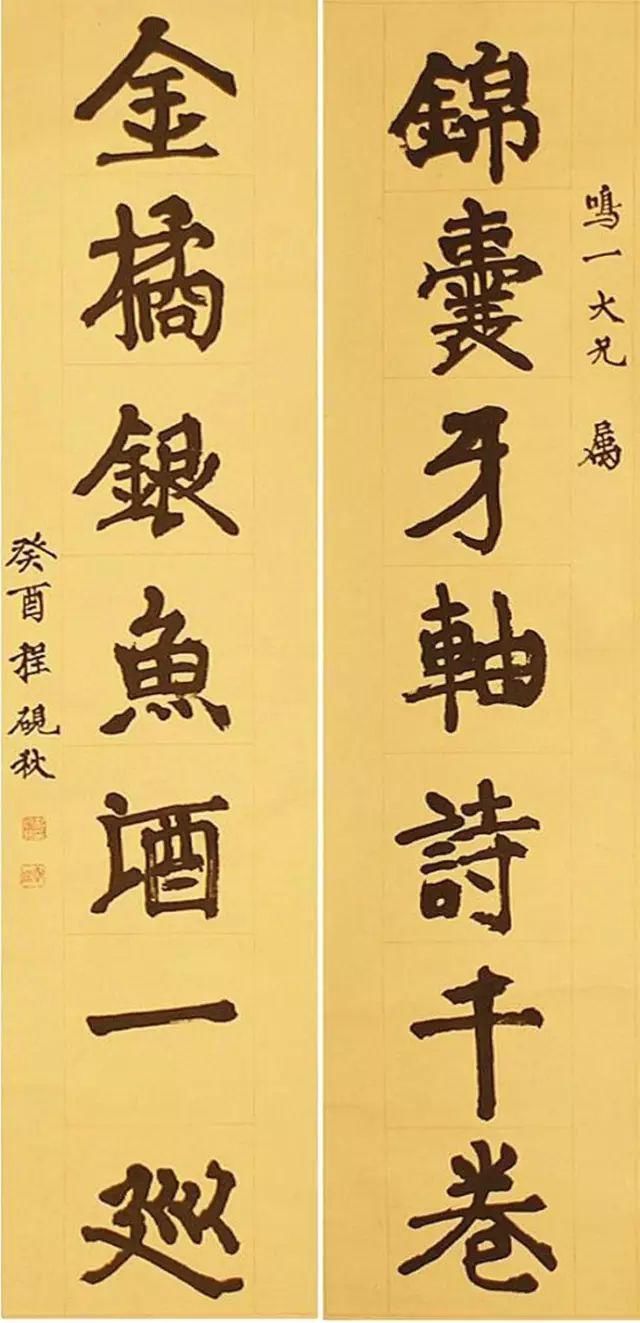 錦囊牙軸詩千卷
鳴一大兄 属
金橘銀魚酒一巡
癸酉程硯秋